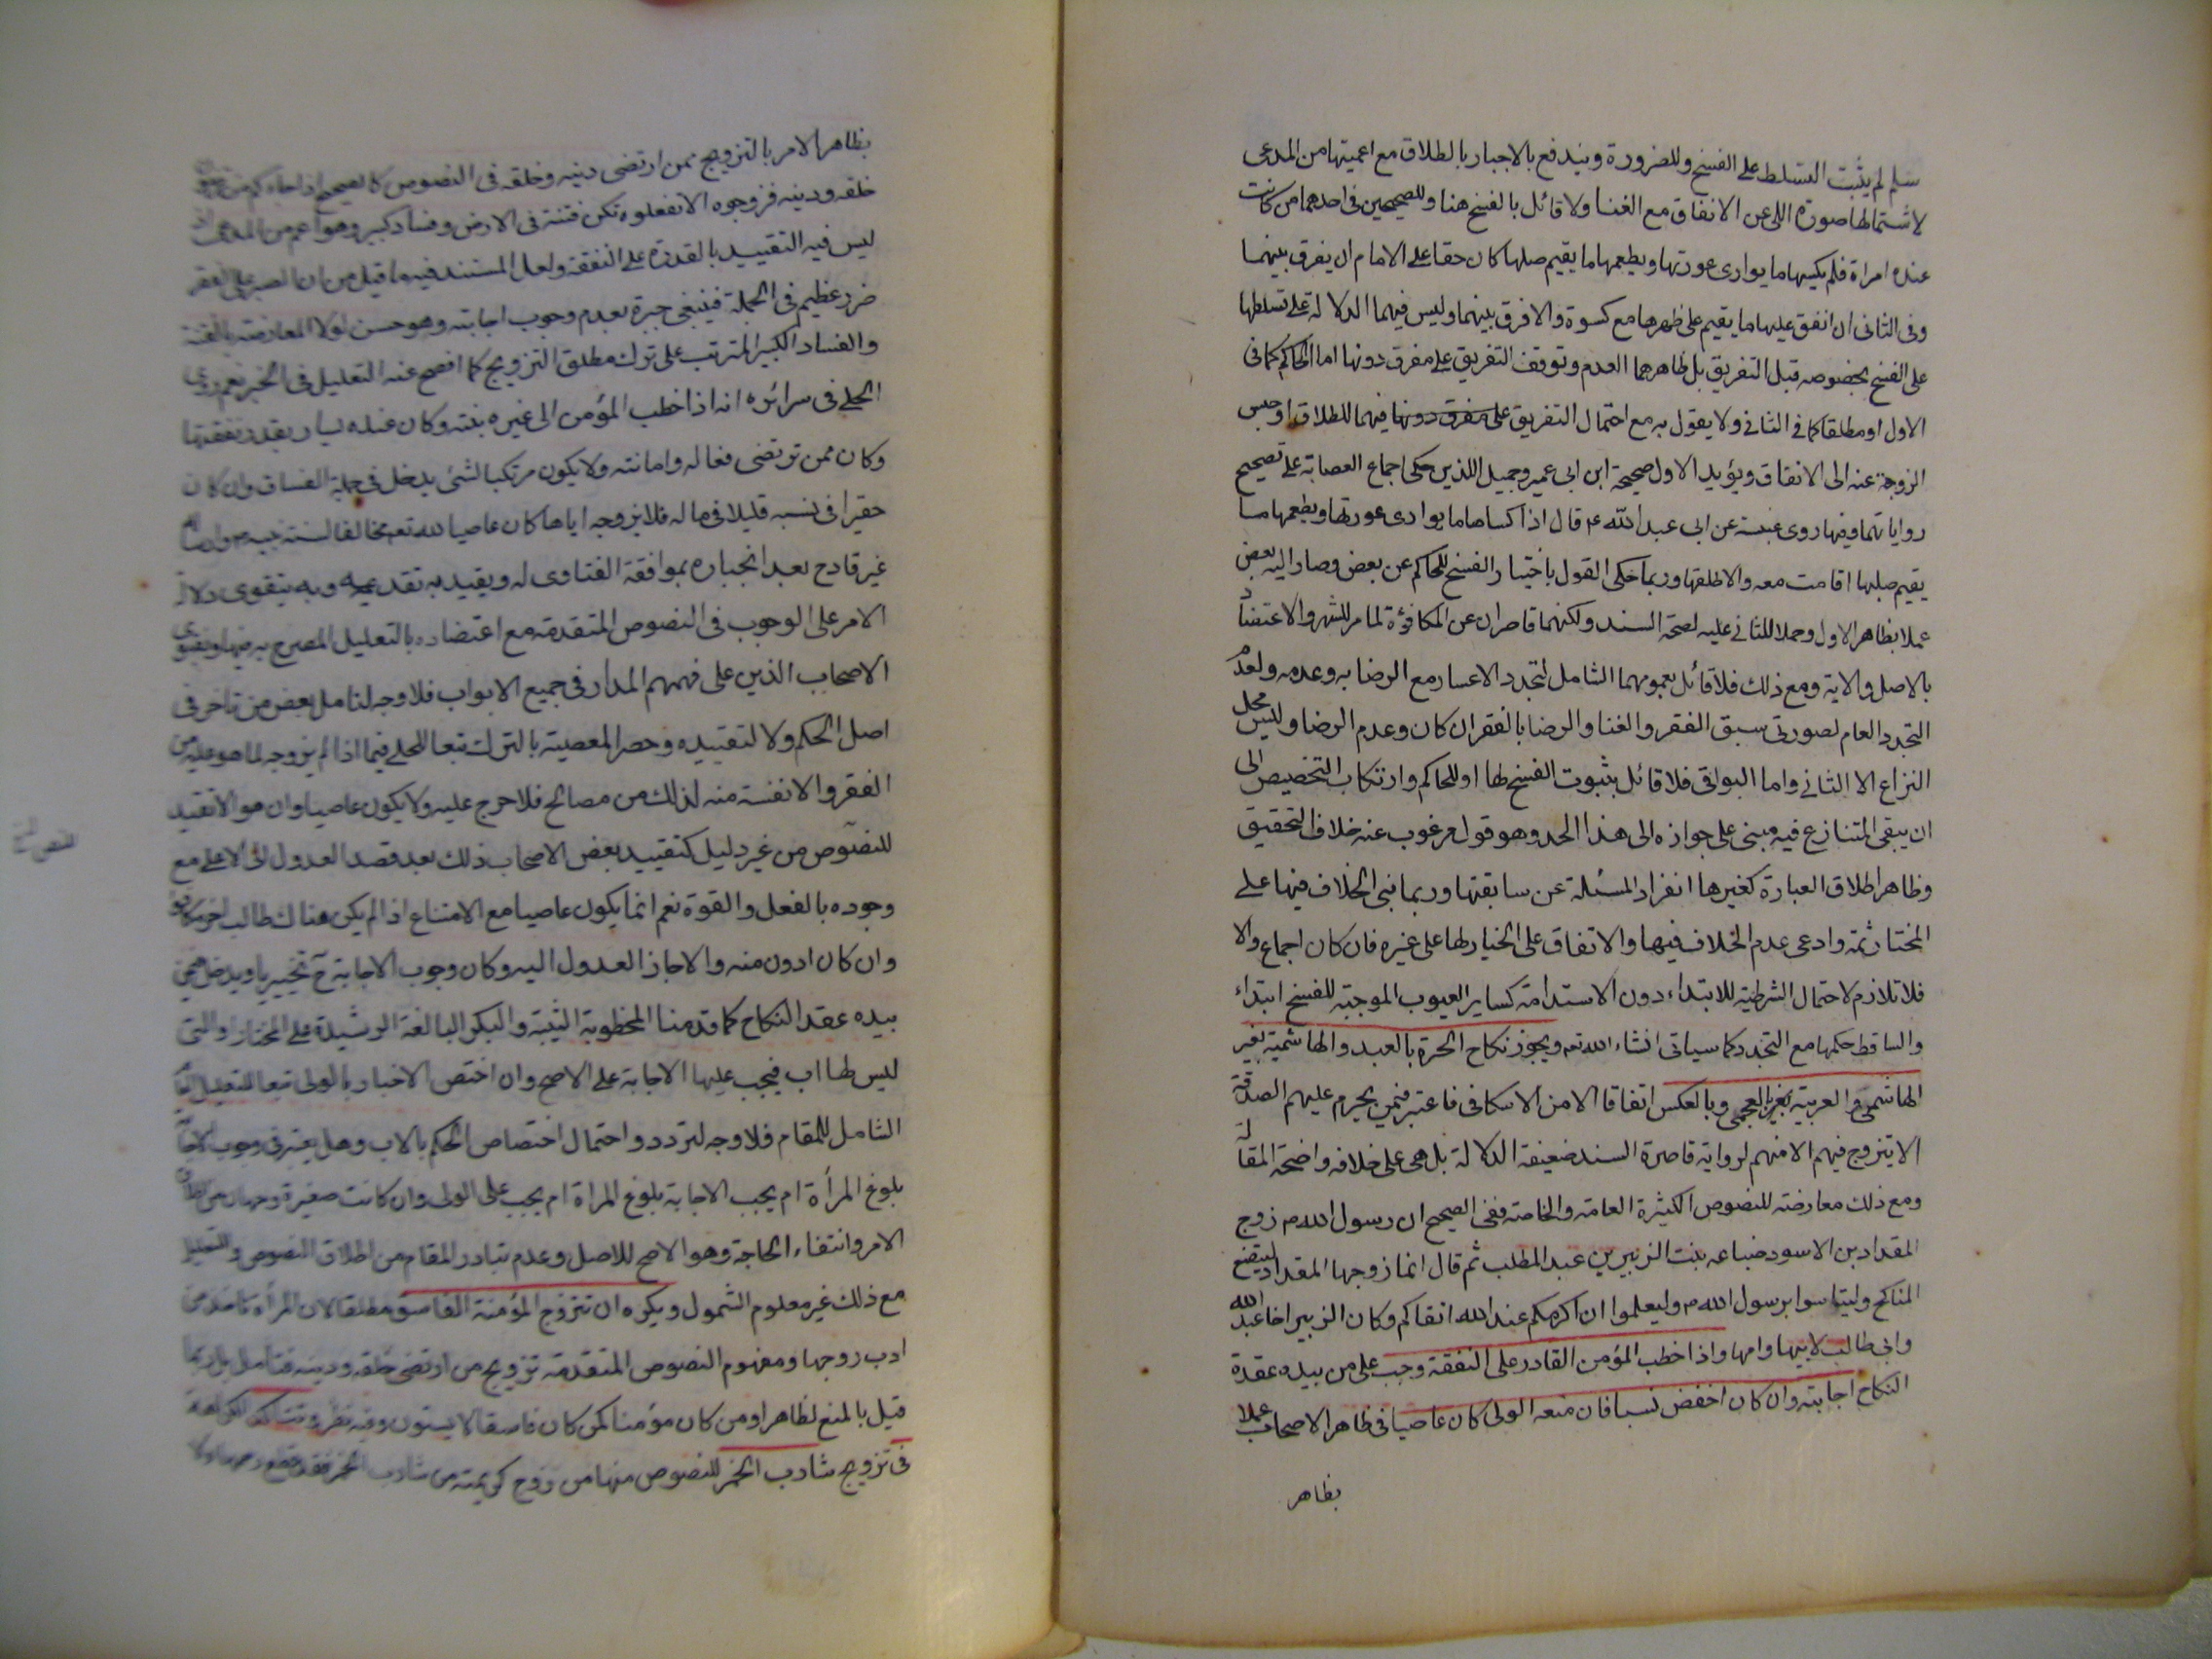 سلم لم يثبت التسلط على الفسخ وللضرورة ويندفع بالاجبار بالطلاق مع اعميتها من المدعى
لاشتمالها صورة اللى عن الانفاق مع الغنا ولا قائل بالفسخ هنا وللصحيحين فى احدهما من كانت
عنده امراة فلم يكسها ما يوارى عورتها ويطعمها ما يقيم صلبها كان حقا على الامام ان يفرق بينهما
وفى الثانى ان انفق عليها ما يقيم على ظهرها مع كسوة والا فرق بينهما وليس فيهما الدلالة على تسلطها
على الفسخ بخصوصه قبل التفريق بل ظاهرهما العدم وتوقف التفريق على مفرق دونها اما الحاكم كما فى
الاول او مطلقا كما فى الثانى ولا يقول به مع احتمال التفريق على مفرق دونها فيهما للطلاق او حبس
الزوجة عنه الى الانفاق ويؤيد الاول صحيحة ابن ابى عمير وجميل اللذين حكى اجماع العصابة على تصحيح
رواياتهما وفيها روى عنبسة عن ابى عبد الله ع قال اذا كساها ما يوارى عورتها ويطعمها ما
يقيم صلبها اقامت معه والا طلقها وربما حكى القول باختيار الفسخ للحاكم عن بعض وصار اليه بعض
عملا بظاهر الاول وحملا للثانى عليه لصحة السند ولكنهما قاصران عن المكافؤة لما مر للشهر والاعتضاد
بالاصل والاية ومع ذلك فلا قائل بعمومهما الشامل لتجدد الاعسار مع الرضا به وعدمه ولعدم
التجدد العام لصورتى سبق الفقر والغنا والرضا بالفقر ان كان وعدم الرضا وليس محل
النزاع الا الثانى واما البواقى فلا قائل بثبوت الفسخ لها او للحاكم وارتكاب التخصيص الى
ان يبقى المتنازع فيه مبنى على جوازه الى هذا الحد وهو قول مرغوب عنه خلاف التحقيق
وظاهر اطلاق العبارة كغيرها انفراد المسئلة عن سابقتها وربما نبى الخلاف فيها على
المختار ثمة وادعى عدم الخلاف فيها والاتفاق على الخيار لها على غيره فان كان اجماع والا
فلا تلازم لاحتمال الشرطية للابتداء دون الاستدامة كساير العيوب الموجبة للفسخ ابتداء
والساقط حكمها مع التجدد كما سياتى انشاء الله تعم ويجوز نكاح الحرة بالعبد والهاشمية بغير
الهاشمى والعربية بغير العجمى وبالعكس اتفاقا الا من الاسكافى فاعتبر فيمن يحرم عليهم الصدقة
الا يتزوج فيهم الا منهم لرواية قاصرة السند ضعيفة الدلالة بل هى على خلافه واضحة المقالة
ومع ذلك معارضة للنصوص الكثيرة العامة والخاصة ففى الصحيح ان رسول الله ص زوج
المقداد بن الاسود ضباعه بنت الزبير بن عبد المطلب ثم قال انما زوجها المقداد ليتضع
المناكح وليتاسوا برسول الله ص وليعلموا ان اكرمكم عند الله اتقاكم وكان الزبير اخا عبد الله
وابى طالب لابيها وامها واذا خطب المؤمن القادر على النفقة وجب على من بيده عقدة
النكاح اجابته وان كان اخفض نسبا فان منعه الولى كان عاصيا فى ظاهر الاصحاب عملا
بظاهر
بظاهر الامر بالتزويج بمن ارتضى دينه وخلقه فى النصوص كالصحيح اذا جاءكم من
خلقه ودينه فزوجوه الا تفعلوه تكن فتنة فى الارض وفساد كبير وهو اعم من المدعى
ليس فيه التقييد بالقدرة على النفقة ولعل المستند فيه ما قيل من ان الصبر على الفقر
ضرر عظيم فى الجملة فينبغى جبره بعدم وجوب اجابته وهو حسن لولا المعارضة بالفتنة
والفساد الكبير المترتب على ترك مطلق التزويج كما افصح عنه التعليل فى الخبر نعم روى
الحلى فى سرائره انه اذا خطب المؤمن الى غيره بنته وكان عنده يسار بقدر نفقتها
وكان ممن ترتضى فعاله وامانته ولا يكون مرتكبا لشئ يدخل فى جملة الفساق وان كان
حقيرا فى نسبه قليلا فى ماله فلا يزوجه اياها كان عاصيا لله تعم مخالفا لسنة نبيه ص
غير قادح بعد انجباره بموافقة الفتاوى له ويقيد به تقدمه وبه يتقوى دلالة
الامر على الوجوب فى النصوص المتقدمة مع اعتضاده بالتعليل المصرح به فيها وبفتوى
الاصحاب الذين على فهمهم المدار فى جميع الابواب فلا وجه لتامل بعض من تاخر فى
اصل الحكم ولا لتقييده وحصر المعصية بالترك تبعا للحلى فيما اذا لم يزوجه لما هو عليه من
الفقر والانفسة منه لذلك من مصالح فلا حرج عليه ولا يكون عاصيا وان هو الا تقييد
للنصوص من غير دليل كتقييد بعض الاصحاب ذلك بعد قصد العدول الى الاعلى مع
وجوده بالفعل والقوة نعم انما يكون عاصيا مع الامتناع اذا لم يكن هناك طالب اخر
وان كان ادون منه والا جاز العدول اليه وكان وجوب الاجابة ح تخييريا ويدخل فيمن
بيده عقد النكاح كما قدمنا المخطوبة الثيبة والبكر البالغة الرشيدة على المختار والتى
ليس لها اب فيجب عليها الاجابة على الاصح وان اختص الاخبار بالولى تبعا للتعليل
الشامل للمقام فلا وجه لتردد واحتمال اختصاص الحكم بالاب وهل يعتبر فى وجوب
بلوغ المرأة ام يجب الاجابة بلوغ المراة ام يجب على الولى وان كانت صغيرة وجهان من
الامر وانتفاء الحاجة وهو الاصح للاصل وعدم تبادر المقام من اطلاق النصوص والتعليل
مع ذلك غير معلوم الشمول ويكره ان تتزوج المؤمنة الفاسق مطلقا لان المرأة تاخذ من
ادب زوجها ومفهوم النصوص المتقدمة تزويج من ارتضى خلقه ودينه فتامل بل ربما
قيل بالمنع لظاهر او من كان مؤمنا كمن كان فاسقا لا يستون وفيه نظر وتتاكد الكراهة
فى تزويج شارب الخمر للنصوص منها من زوج كريمته من شارب الخمر فقد قطع رحمها